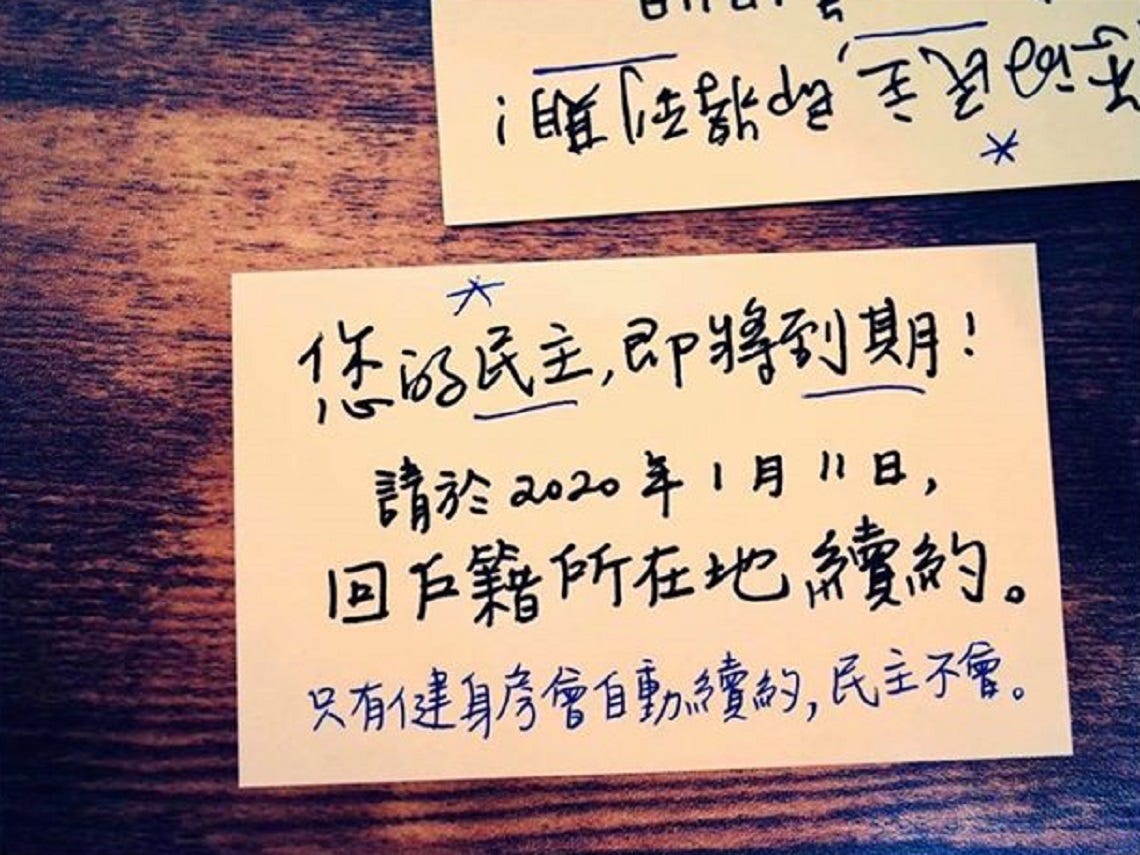 您的民主,即將到期!
您的民主,即將到期!
請於2020年1月11日,
回戶籍所在地續約。
只有健身房會自動續約,民主不會。